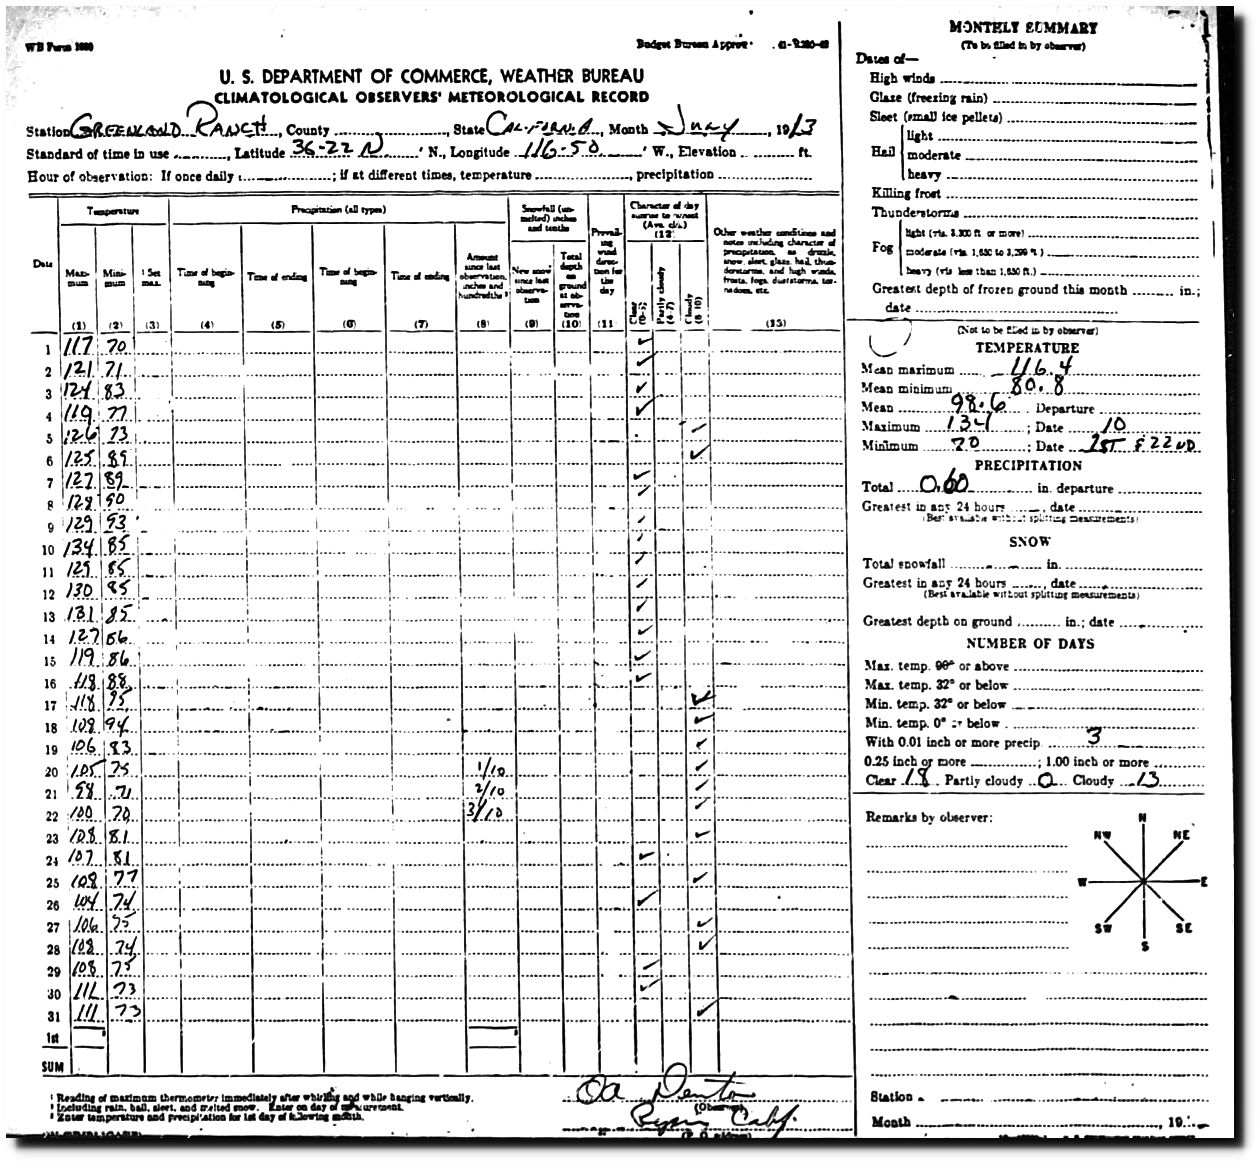 WB Form 1009
Budget Bureau
U. S. DEPARTMENT OF COMMERCE, WEATHER BUREAU
CLIMATOLOGICAL OBSERVERS' METEOROLOGICAL RECORD
Station GREENLAND RANCH, County, State CALIFORNIA, Month July, 1913
Standard of time in use, Latitude 36-22 N ' N., Longitude 116-50 ' W., Elevation ft.
Hour of observation: If once daily ; if at different times, temperature, precipitation
Temperature
Precipitation (all types)
Snowfall (unmelted) inches and tenths
Prevailing wind direction for the day
Character of day sunrise to sunset
(12)
Other weather conditions and notes including character of precipitation, as drizzle, snow, sleet, glaze, hail, thunderstorms, and high winds, frosts, fogs, duststorms, tornadoes, etc.
Date
Maximum
Minimum
Set max.
Time of beginning
Time of ending
Time of beginning
Time of ending
Amount since last observation, inches and hundredths
New snow since last observation
Total depth on ground at observation time
Clear (0-3)
Partly cloudy (4-7)
Cloudy (8-10)
(1) (2) (3) (4) (5) (6) (7) (8) (9) (10) (11 (13)
1 117 70 ✓
2 121 71 ✓
3 124 83 ✓
4 119 77 ✓
5 126 73 ✓
6 125 89 ✓
7 127 89 ✓
8 128 90 ✓
9 129 93 ✓
10 134 85 ✓
11 129 85 ✓
12 130 85 ✓
13 131 85 ✓
14 127 86 ✓
15 119 86 ✓
16 118 88 ✓
17 118 95 ✓
18 108 94 ✓
19 106 83 ✓
20 105 75 1/10 ✓
21 98 71 2/10 ✓
22 100 70 3/10 ✓
23 108 81 ✓
24 107 81 ✓
25 108 77 ✓
26 104 74 ✓
27 106 75 ✓
28 108 74 ✓
29 108 75 ✓
30 111 73 ✓
31 111 73 ✓
1st
SUM
¹ Reading of maximum thermometer immediately after whirling and while hanging vertically.
² Including rain, hail, sleet, and melted snow. Enter on day of measurement.
³ Enter temperature and precipitation for 1st day of following month.
Oa Denton
(Observer)
Ryan Calif.
MONTHLY SUMMARY
(To be filled in by observer)
Dates of—
High winds
Glaze (freezing rain)
Sleet (small ice pellets)
Hail
light
moderate
heavy
Killing frost
Thunderstorms
Fog
light (vis. 3,300 ft. or more)
moderate (vis. 1,650 to 3,299 ft.)
heavy (vis. less than 1,650 ft.)
Greatest depth of frozen ground this month in.;
date
(Not to be filled in by observer)
TEMPERATURE
Mean maximum 116.4
Mean minimum 80.8
Mean 98.6 Departure
Maximum 134 ; Date 10
Minimum 70 ; Date 1ST & 22ND
PRECIPITATION
Total 0.60 in. departure
Greatest in any 24 hours, date
(Best available without splitting measurements)
SNOW
Total snowfall in.
Greatest in any 24 hours, date
(Best available without splitting measurements)
Greatest depth on ground in.; date
NUMBER OF DAYS
Max. temp. 90° or above
Max. temp. 32° or below
Min. temp. 32° or below
Min. temp. 0° or below
With 0.01 inch or more precip. 3
0.25 inch or more ; 1.00 inch or more
Clear 18 Partly cloudy 0 Cloudy 13
Remarks by observer:
N
NW NE
W E
SW SE
S
Station
Month , 19